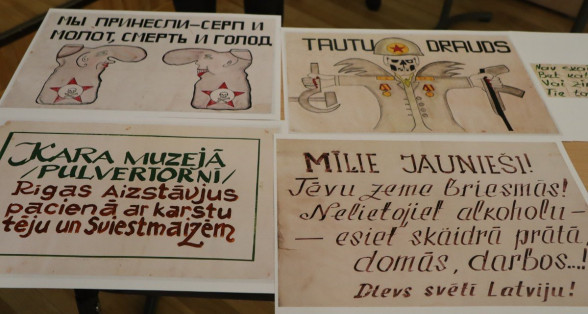 МЫ ПРИНЕСЛИ-СЕРП И
МОЛОТ, СМЕРТЬ И ГОЛОД
TAUTU DRAUDS
KARA MUZEJĀ
/PULVERTORNĪ/
Rīgas Aizstāvjus
pacienā ar karstu
tēju un Sviestmaizēm
MĪLIE JAUNIEŠI!
Tēvu zeme briesmās!
Nelietojiet alkoholu-
- esiet skaidrā prātā,
domās, darbos...!
Dievs svētī Latviju!